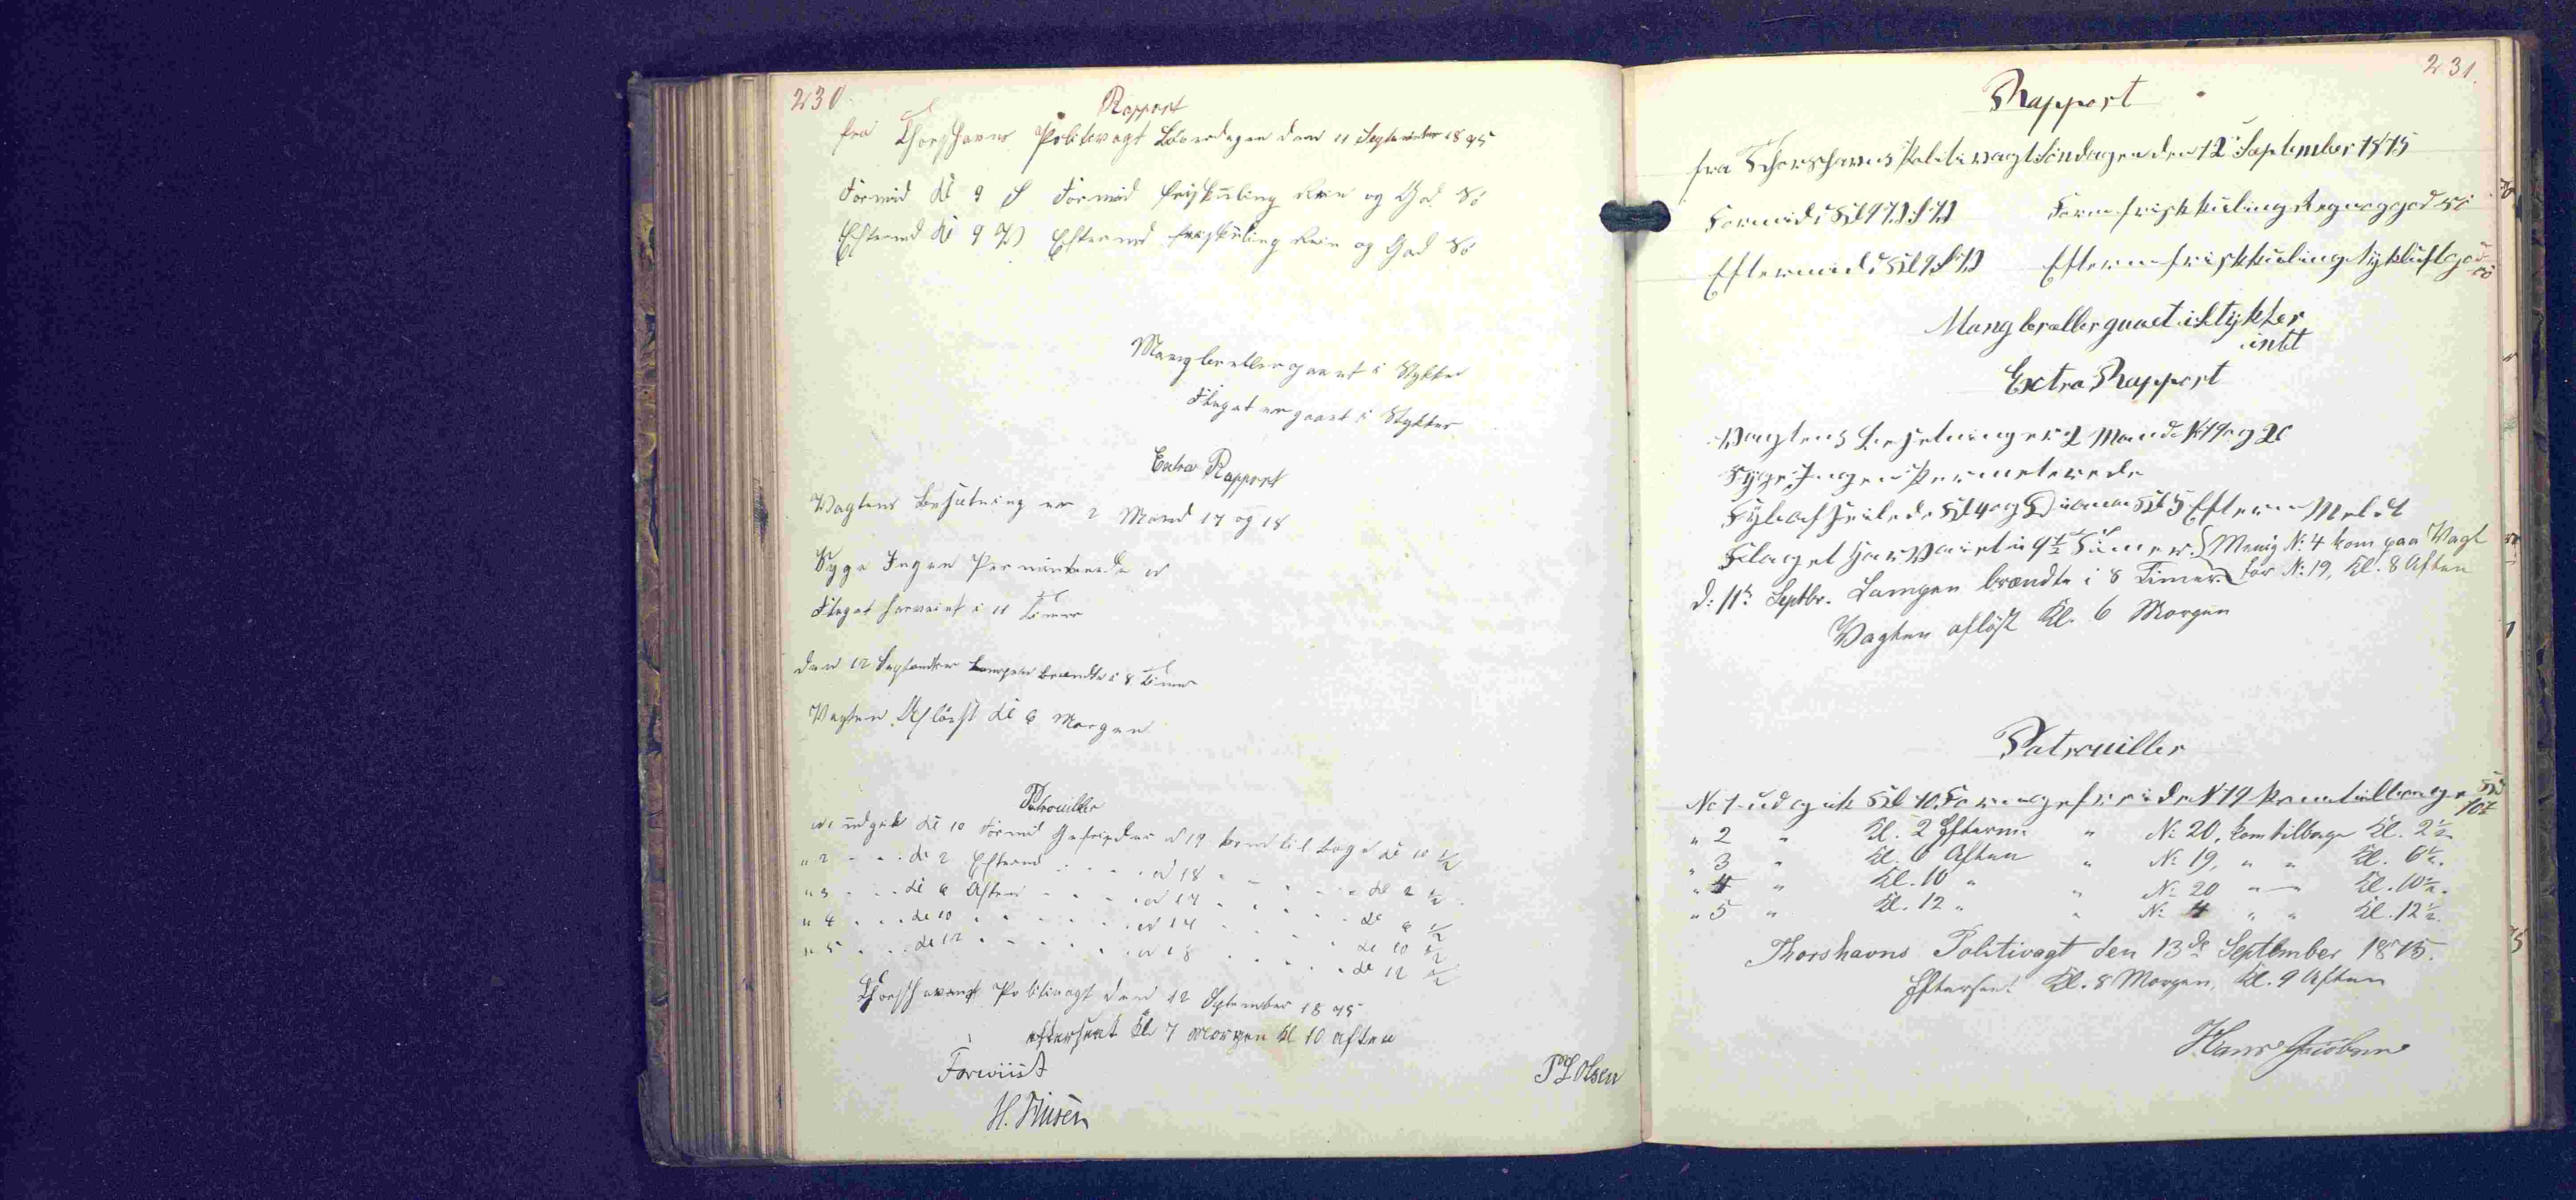 230
Rapport
fra Thorshavns Politivagt Löverdagen den 11 September 1875
Formid Kl 9 S Formid friskuling Rein og God Sö
Eftermd Kl 9 V Eftermd friskuling Rein og God Sö
Mangler eller gaaet i Stykker
Flaget er gaaet i Stykker
Extra Rapport
Vagtens Besætning er 2 Mand 17 og 18
Syge Ingen Permiterede
Flaget har veiet i 11 Timer
Den 12 September Lampen brændte i 8 Timer
Vagten Aflöst Kl 6 Morgen
Patrouiller
N1 udgik Kl 10 Formid Gefreider N 17 kom tilbage Kl 10 1/2
" 2 " " Kl 2 Efterm " " N 18 " " Kl 2 1/2
" 3 " " Kl 6 Aften " " N 17 " " Kl 6 1/2
" 4 " " Kl 10 " " N 17 " " Kl 10 1/2
" 5 " " Kl 12 " " N 18 " " Kl 12 1/2
Thorshavns Politivagt den 12 September 1875
efterseet Kl 7 Morgen Kl 10 aften
Foreviist
P L Olsen
231.
Rapport
fra Thorshavns Politivagt Söndagen den 12 September 1875
Formid: Kl 9 Form friskkuling Regn og god Sö
Eftermid: Kl 9 Efterm friskkuling Tykluft god Sö
Mangler eller gaaet i Stykker
intet
Extra Rapport
Vagtens Besetning er 2 Mand N 19 og 20
Syge Ingen Permeterede
Kl 4 og Kl 5 Efterm Meldt
Flaget har Vaiet i 9 1/2 Timer. Menig N: 4 kom paa Vagt
for N: 19, Kl. 8 Aften
d: 11te Septbr. Lampen brændte i 8 Timer.
Vagten aflöst Kl. 6 Morgen
Patrouiller
No 1 udgik Kl 10. Form gefreider N 19 kom tilbage Kl 10 1/2
" 2 " Kl. 2 Efterm. " N: 20, kom tilbage Kl. 2 1/2.
" 3 " Kl. 6 Aften " N: 19, " " Kl. 6 1/2.
" 4 " Kl. 10 " " N: 20 " " Kl. 10 1/2.
" 5 " Kl. 12 " " N: 4 " " Kl. 12 1/2.
Thorshavns Politivagt den 13de September 1875.
Efterseet Kl. 8 Morgen, Kl. 9 Aften
Hans Jacobsen